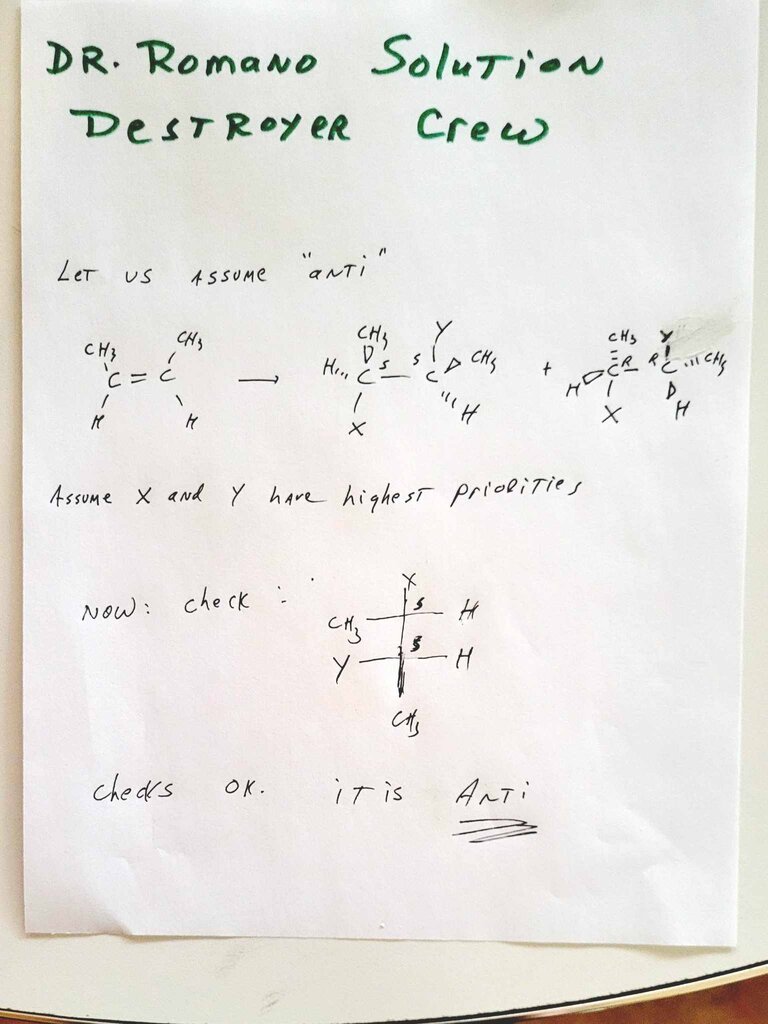 DR. Romano Solution
Destroyer Crew
Let us assume "anti"
CH3 CH3 CH3 Y CH3 Y
C = C H C S S C CH3 + H C R R C CH3
H H X H X H
Assume X and Y have highest priorities
Now: check :
X
S
CH3 H
S
Y H
CH3
checks OK. it is Anti